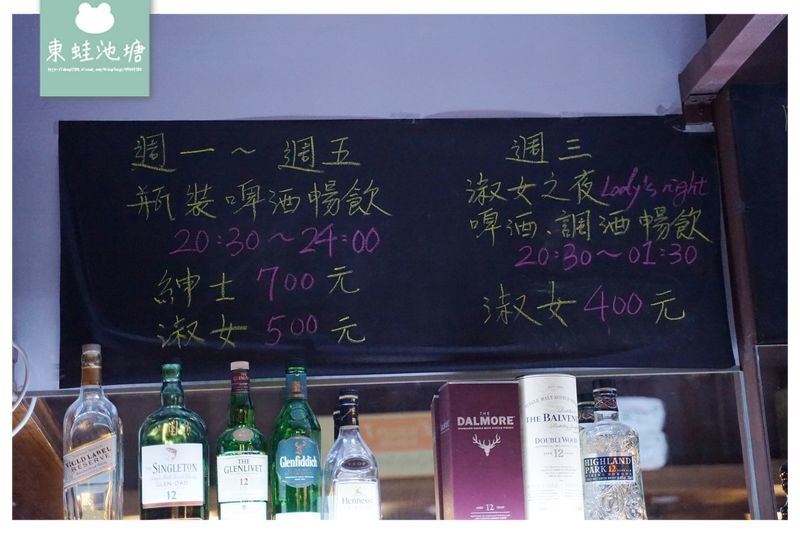 東蛙池塘
週一～週五
瓶裝啤酒暢飲
20:30～24:00
紳士 700 元
淑女 500 元
週三
淑女之夜 Lady's night
啤酒、調酒暢飲
20:30～01:30
淑女 400 元
GOLD LABEL
RESERVE
THE
SINGLETON
GLEN ORD
12
THE
GLENLIVET
12
Glenfiddich
12
V.S.O.P
Hennessy
THE
DALMORE
AGED 12 YEARS
SINGLE MALT SCOTCH
THE BALVENIE
DOUBLEWOOD
AGED 12 YEARS
HIGHLAND
PARK 12